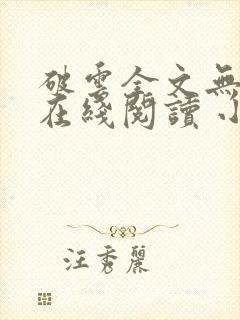 破雲全文無
在綫閱讀 小
汪秀麗